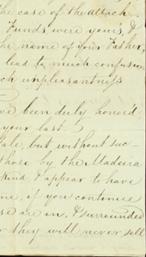 the case of the attach
Funds were yours, &
the name of your Father,
lead to much confusion
ch unpleasantness
ve been duly honor'd
your last.
Sale, but without suc
those by the Madeira
I appear to have
me, if you continue
se are in. I surrounded
or they will never sell